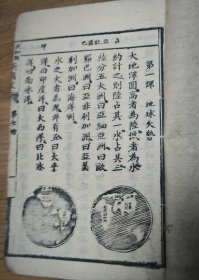 第一課 地球大勢
大地渾圓高者為陸低者為水
約計之則陸占其一水占其三
陸分五大洲曰亞細亞洲曰歐
羅巴洲曰亞非利加洲曰亞美
利加洲曰海洋洲
水之大者為洋有五曰太平
洋曰印度洋曰大西洋曰北冰
洋曰南冰洋